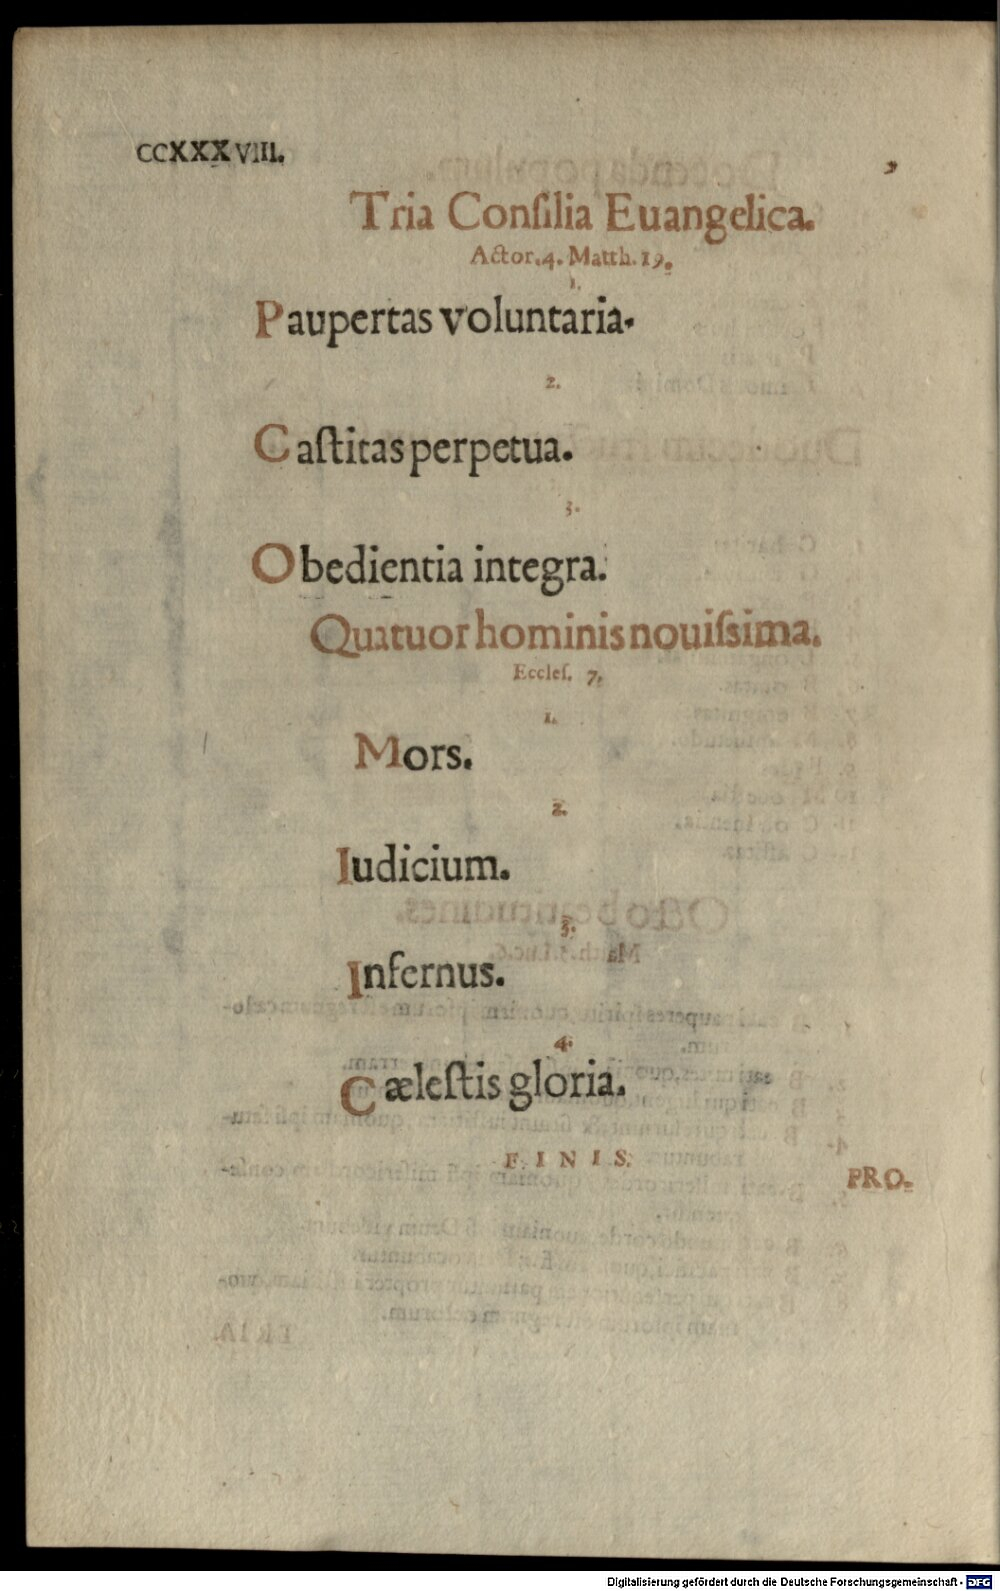 CCXXXVIII.
Tria Conſilia Euangelica.
Actor.4. Matth.19.
1.
Paupertas voluntaria.
2.
Caſtitas perpetua.
3.
Obedientia integra.
Quatuor hominis nouiſsima.
Eccleſ. 7.
1.
Mors.
2.
Iudicium.
3.
Infernus.
4.
Cæleſtis gloria.
FINIS.
PRO.
Digitalisierung gefördert durch die Deutsche Forschungsgemeinschaft - DFG